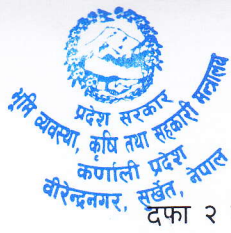 प्रदेश सरकार
भूमि व्यवस्था, कृषि तथा सहकारी मन्त्रालय
कर्णाली प्रदेश
वीरेन्द्रनगर, सुर्खेत, नेपाल
दफा २